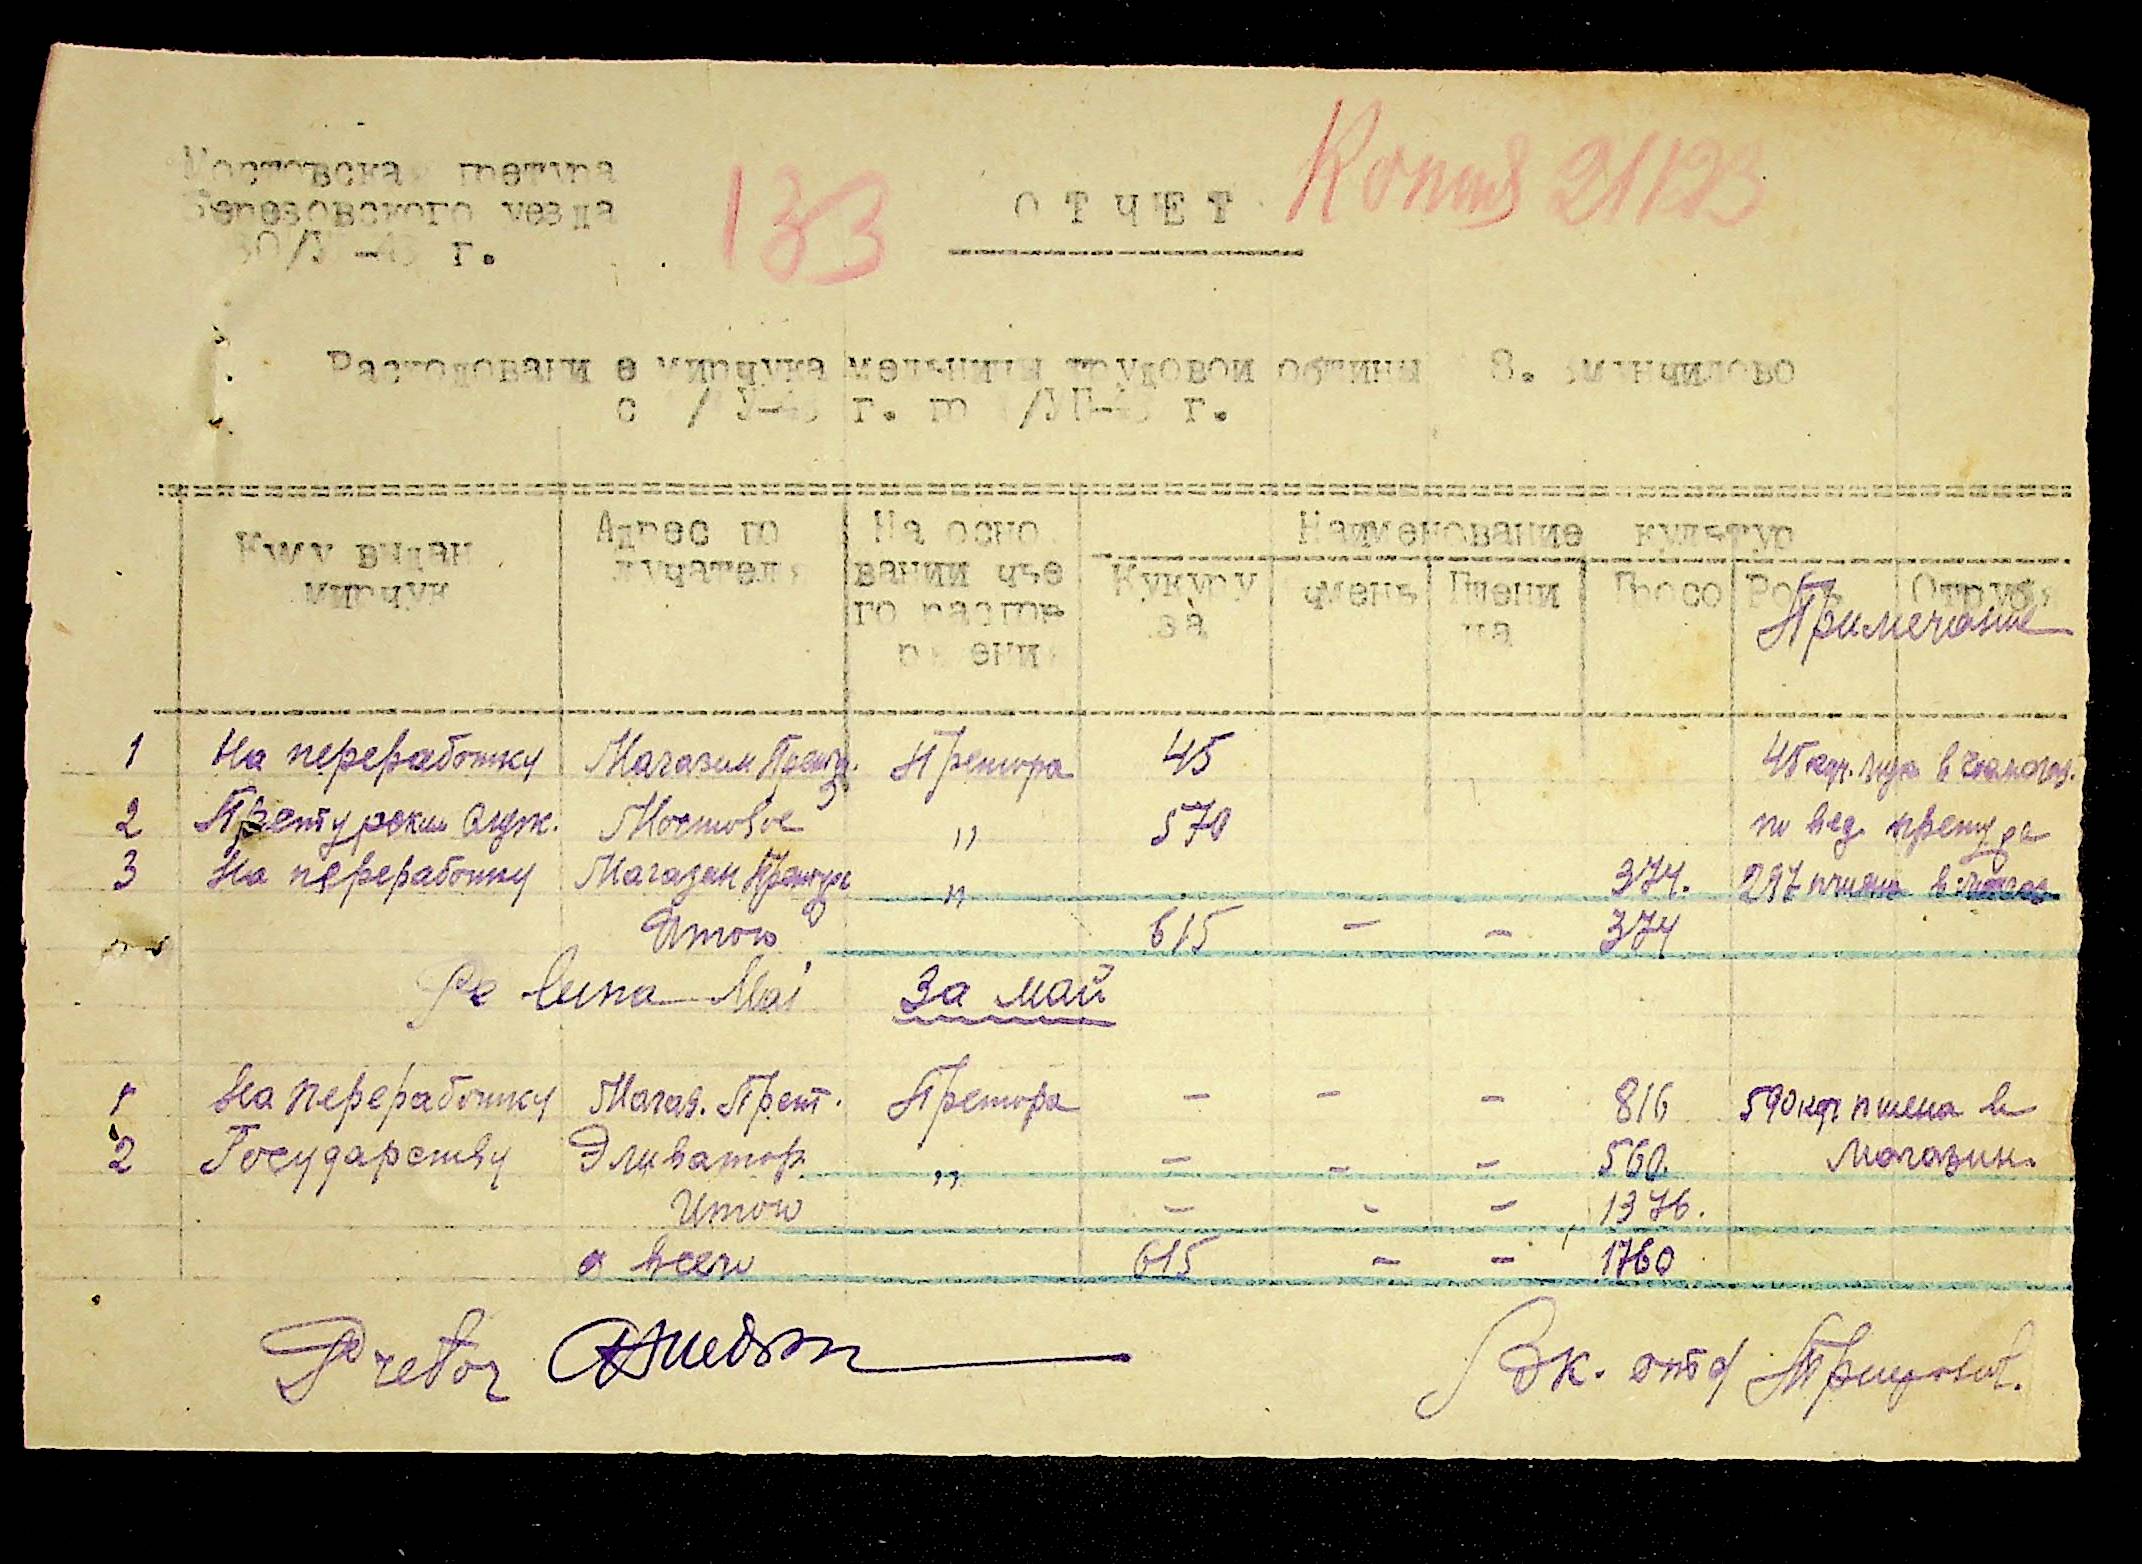 Мостовская претура
Березовского уезда
30/V-43 г.
133
ОТЧЕТ
Копия 21/123
Расходование мирчука мельницы трудовой общины 8.
с /V-43 г. по /VI-43 г.
Кому выдан мирчук
Адрес получателя
На основании чьего распоряжения
Наименование культур
Кукуруза
Ячмень
Пшеница
Просо
Рожь
Отруби
Примечание
1 На переработку Магазин Прет. Претора 45 45 в
2 Претурским служ. Мостовое " 570 по вед. претуре
3 На переработку Магазин Претуре " 374. 297 пшена в
Итого 615 – – 374
Pe luna Mai За май
1 На переработку Магаз. Прет. Претора – – – 816 590 кгр пшена в
2 Государству Эливатор " – – – 560. магазин.
Итого – – – 1376.
а всего 615 – – 1760
Pretor